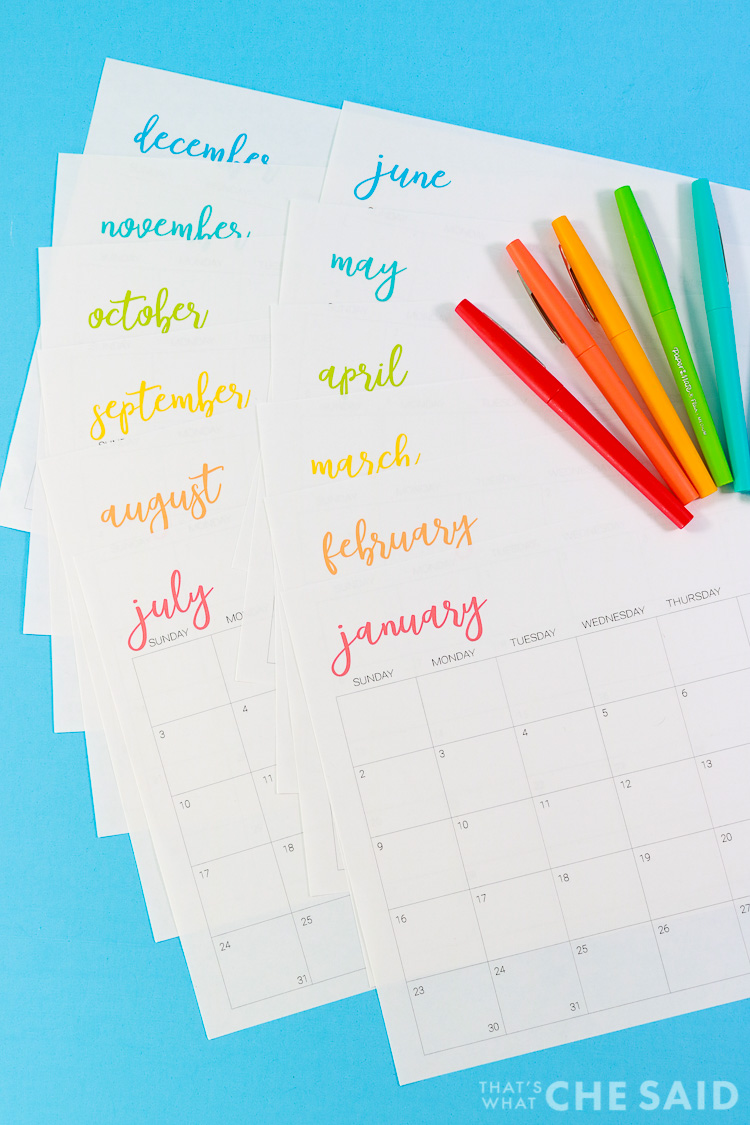 december
november
october
september
august
july
SUNDAY MO
3 4
10 11
17 18
24 25
31
june
may
april
march
february
january
SUNDAY MONDAY TUESDAY WEDNESDAY THURSDAY
2 3 4 5 6
9 10 11 12 13
16 17 18 19 20
23 24 25 26 27
30 31
Paper Mate
THAT'S WHAT CHE SAID